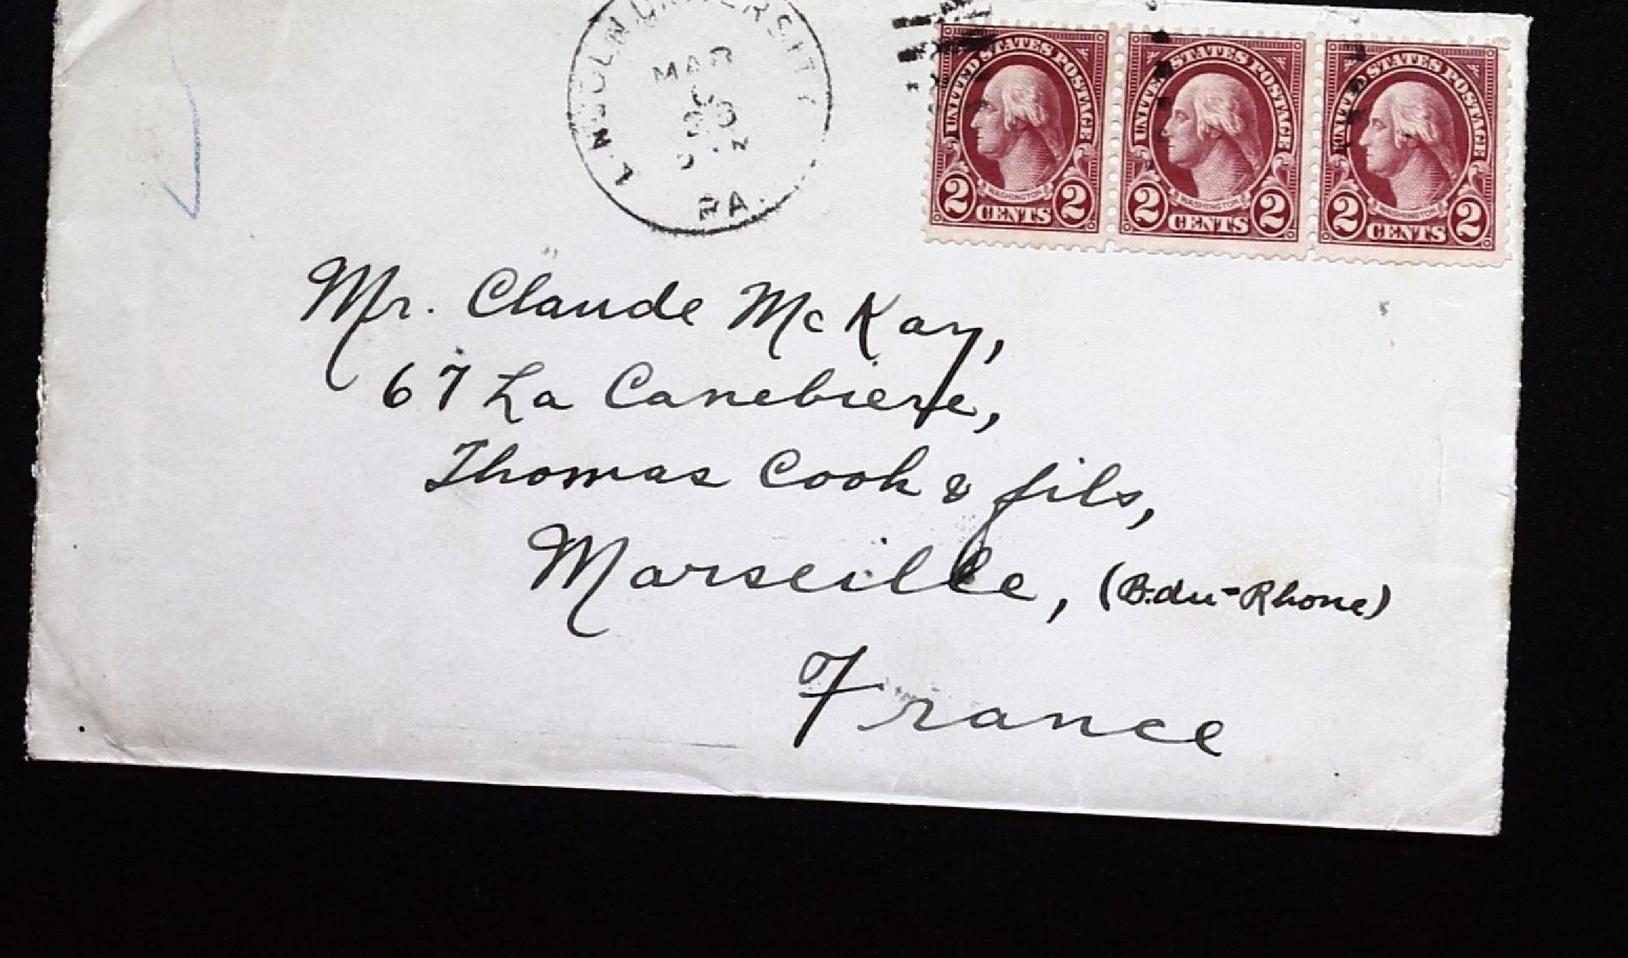 LINCOLN UNIVERSITY
MAR
PA.
UNITED STATES POSTAGE
WASHINGTON
2 CENTS 2
UNITED STATES POSTAGE
WASHINGTON
2 CENTS 2
UNITED STATES POSTAGE
WASHINGTON
2 CENTS 2
Mr. Claude McKay,
67 La Canebiere,
Thomas Cook & fils,
Marseille, (B.du-Rhone)
France